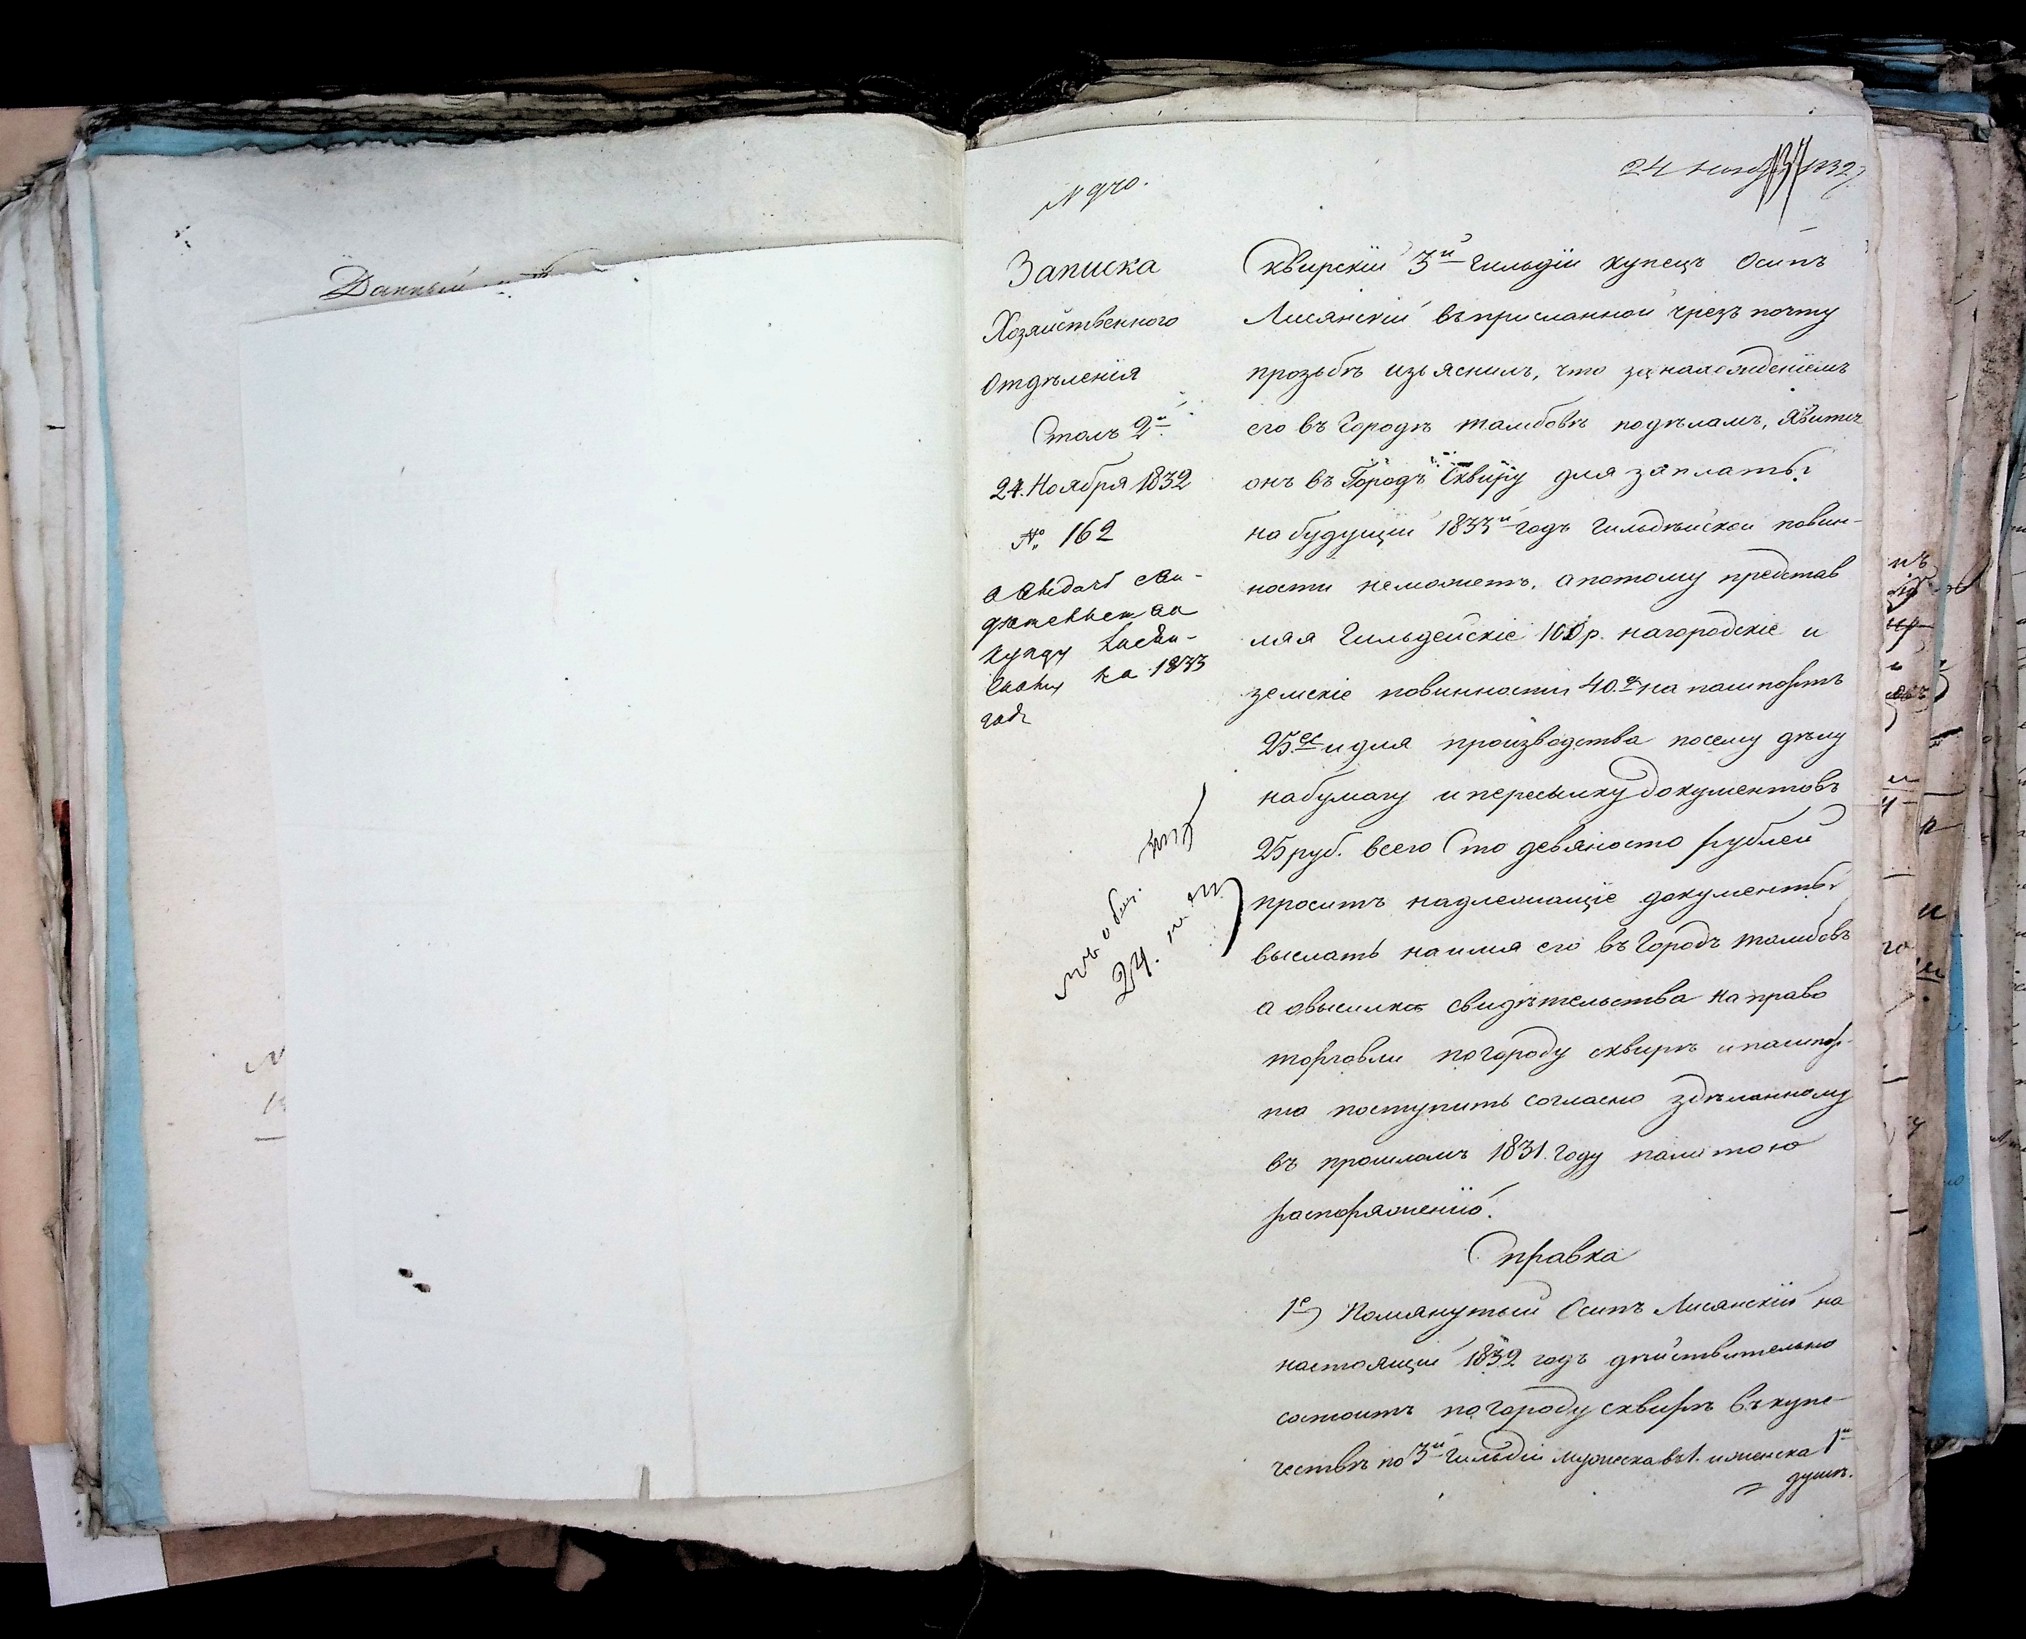 Данный
24 Нояб 1832
Записка
Хозяйственного
Отдѣленія
Столъ 2й
24. Ноября 1832
№ 162
О выдачѣ сви-
дѣтельства
купцу Лися-
нскому на 1833
годъ
24.
Сквирскій 3й Гильдіи купецъ Осипъ
Лисянскій въ присланной чрезъ почту
прозьбѣ изъяснилъ, что за нахожденіемъ
его въ Городѣ Тамбовѣ по дѣламъ, явитъся
онъ въ Городъ Сквиру для заплаты
на будущій 1833й годъ Гильдѣйской повин-
ности неможетъ, а потому представ
ляя Гильдейскіе 100 р. на городскіе и
земскіе повинности 40. р на пашпортъ
25 р и для производства посему дѣлу
на бумагу и пересылку документовъ
25 руб. всего Сто девяносто рублей
проситъ надлежащіе документы
выслать на имя его въ Городъ Тамбовъ
а о высилкѣ свидѣтельства на право
торговли по городу сквирѣ и пашпор-
та поступить согласно здѣланному
въ прошломъ 1831. году палатою
распоряженію.
Справка
1е) Помянутый Осипъ Лисянскій на
настоящій 1832 годъ дѣйствительно
состоитъ по городу сквирѣ въ купе-
чествѣ по 3й Гильдіи мужеска въ 1. и женска 1й
душѣ.